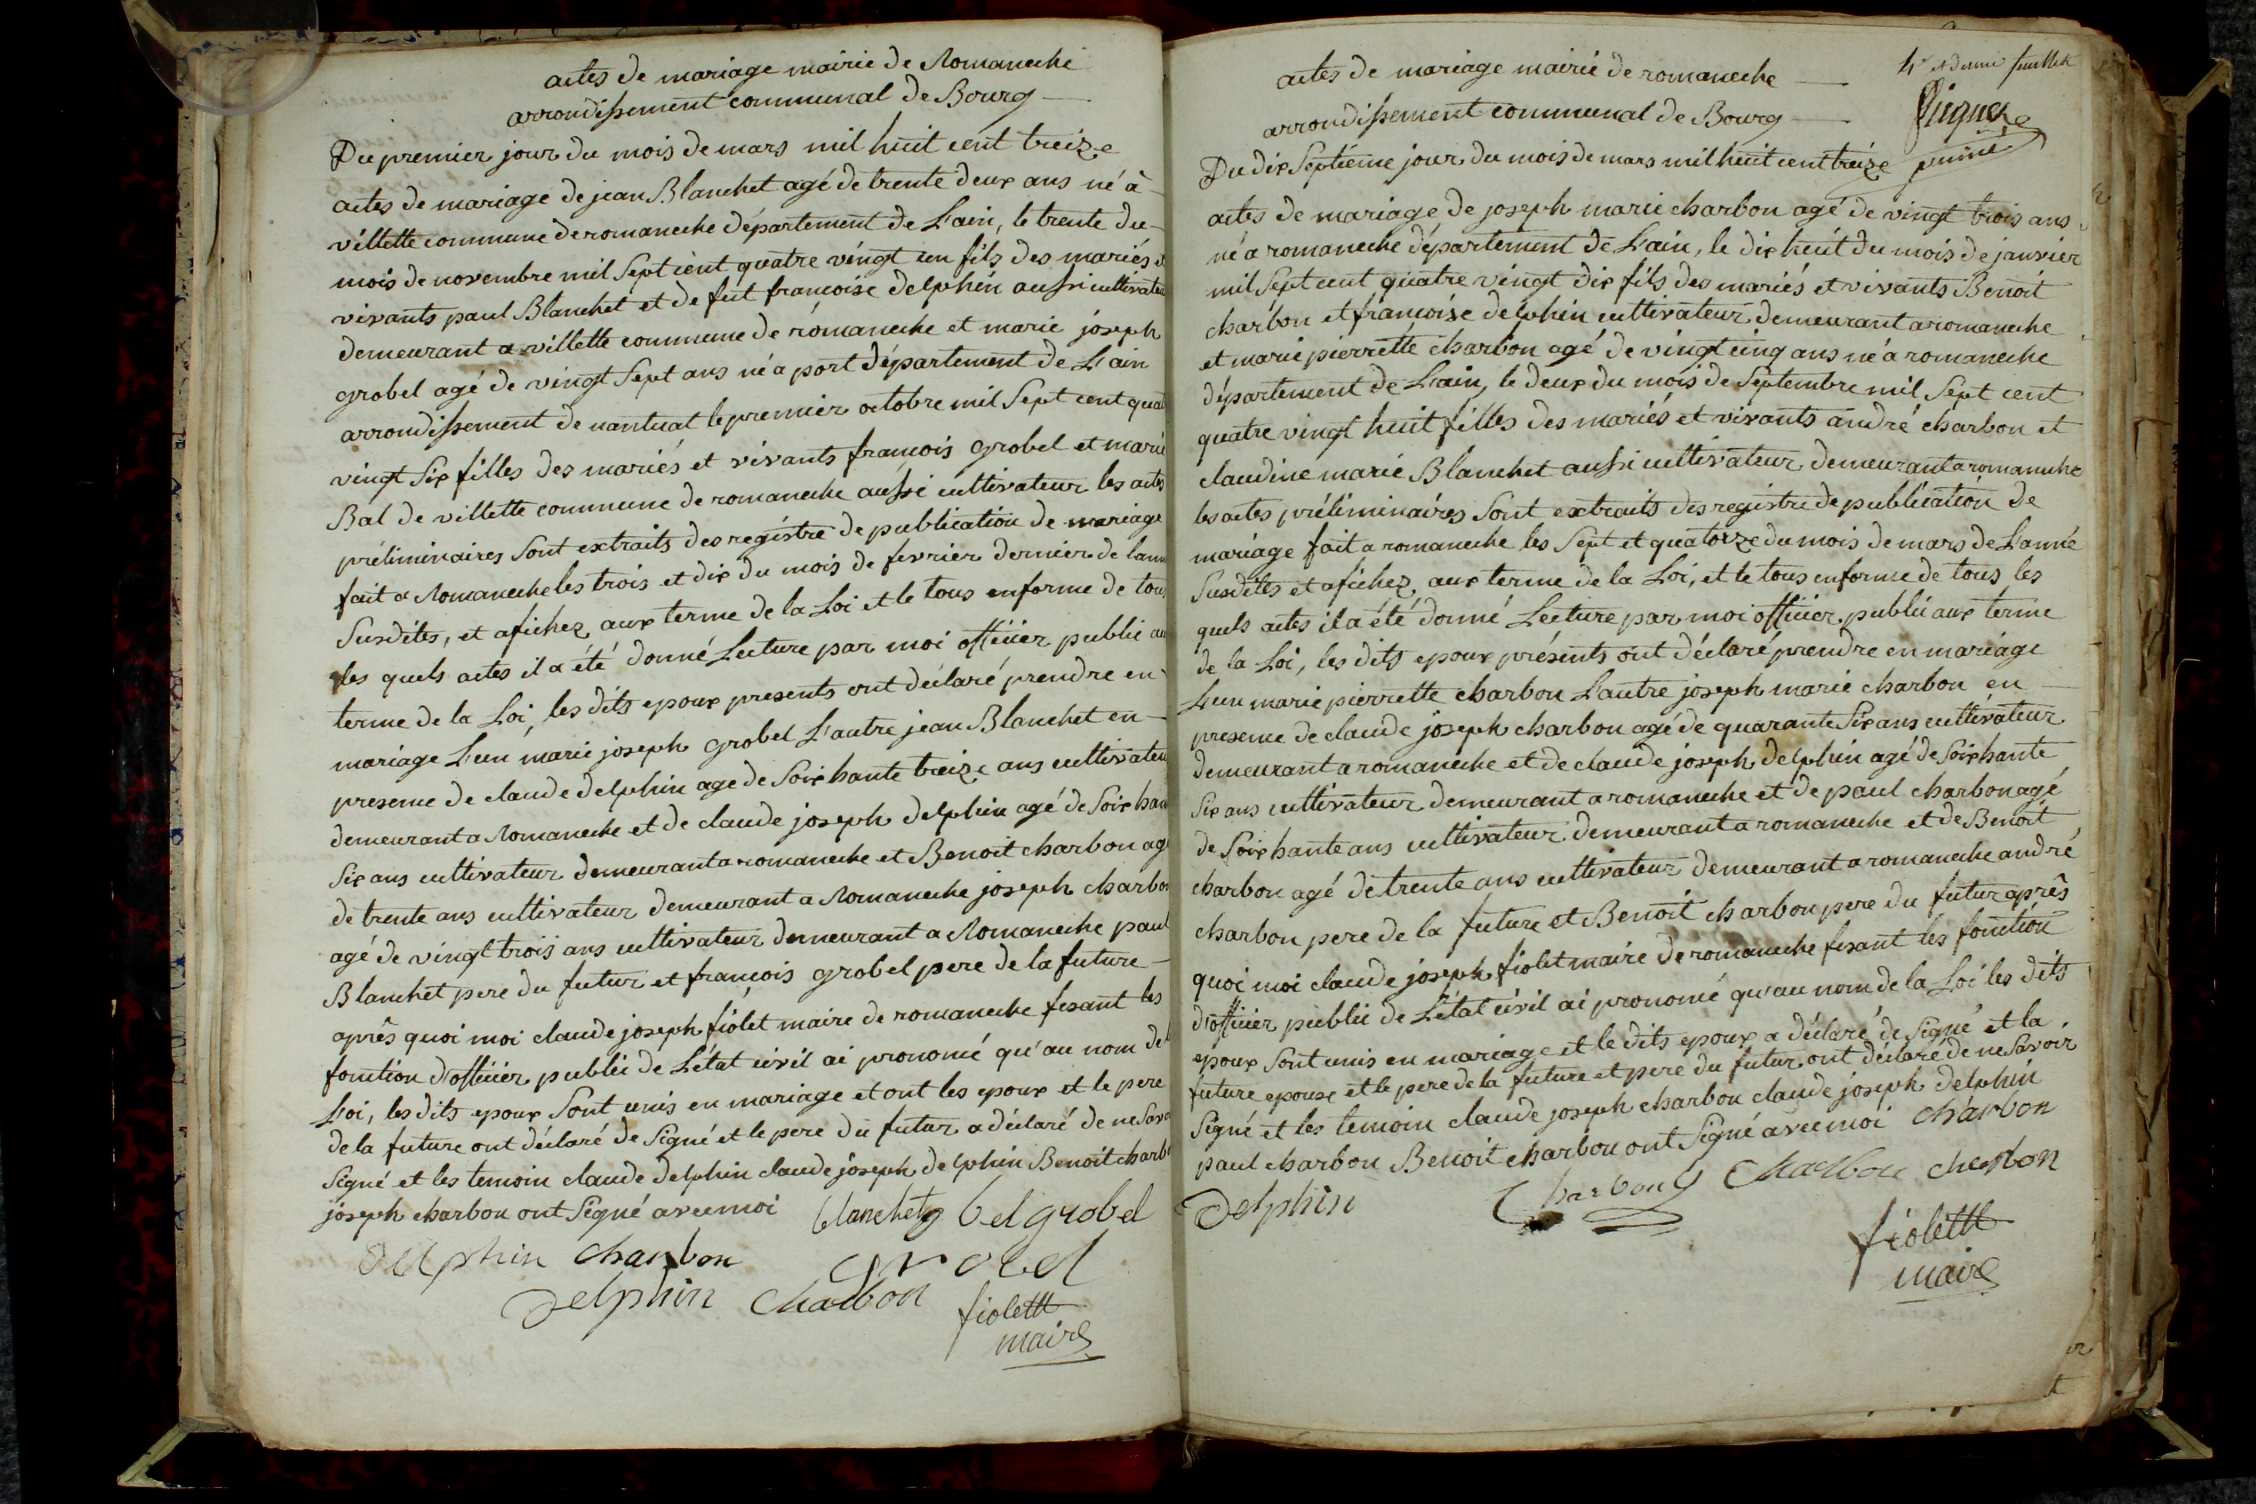 actes de mariage mairie de Romaneche
arrondissement communal de Bourg
Du premier jour du mois de mars mil huit cent treize
actes de mariage de jean Blanchet agé de trente deux ans né à
villette commune de romaneche département de L'ain, le trente du
mois de novembre mil sept cent quatre vingt un fils des mariés
vivants paul Blanchet et de fut françoise delphin aussi cultivateu
demeurant a villette commune de romaneche et marie joseph
grobel agé de vingt sept ans né a port département de L'ain
arrondissement de nantuat le premier octobre mil sept cent quat
vingt six filles des mariés et vivants françois grobel et marie
Bal de villette commune de romaneche aussi cultivateur les actes
préliminaires sont extraits des registre de publication de mariage
fait a Romaneche les trois et dix du mois de fevrier dernier de lann
susdites, et afichez aux terme de la Loi et le tous enforme de tous
les quels actes il a été donné Lecture par moi officier public au
terme de la Loi, les dits epoux presents ont déclaré prendre en
mariage L'un marie joseph grobel L'autre jean Blanchet en
presence de claude delphin age de soixhante treize ans cultivateu
demeurant a Romaneche et de claude joseph delphin agé de soixhan
six ans cultivateur demeurant a romaneche et Benoit charbon ag
de trente ans cultivateur demeurant a Romaneche joseph charbon
agé de vingt trois ans cultivateur demeurant a Romaneche paul
Blanchet pere du futur et françois grobel pere de la future
après quoi moi claude joseph fiolet maire de romaneche fesant les
fonction d'officier public de L'état civil ai prononcé qu'au nom de
Loi, les dits epoux sont unis en mariage et ont les epoux et le pere
de la future ont déclaré de signé et le pere du futur a déclaré de ne savo
signé et les temoin claude delphin claude joseph delphin Benoit charb
joseph charbon ont signé avec moi blanchet bel grobel
delphin charbon grobel
delphin charbon fiolett
maire
4e et dernier feuillet
actes de mariage mairie de romaneche
arrondissement communal de Bourg
Du dix septième jour du mois de mars mil huit cent treize
actes de mariage de joseph marie charbon agé de vingt trois ans
né a romaneche département de L'ain, le dix huit du mois de janvier
mil sept cent quatre vingt dix fils des mariés et vivants Benoit
charbon et françoise delphin cultivateur demeurant a romaneche
et marie pierrette charbon agé de vingt cinq ans né a romaneche
département de L'ain, le deux du mois de septembre mil sept cent
quatre vingt huit filles des mariés et vivants andré charbon et
claudine marie Blanchet aussi cultivateur demeurant a romaneche
les actes préliminaires sont extraits des registre de publication de
mariage fait a romaneche les sept et quatorze du mois de mars de L'année
susdites et afichez aux terme de la Loi, et le tous enforme de tous les
quels actes il a été donné Lecture par moi officier public aux terme
de la Loi, les dits epoux présents ont déclaré prendre en mariage
L'un marie pierrette charbon L'autre joseph marie charbon en
presence de claude joseph charbon agé de quarante six ans cultivateur
demeurant a romaneche et de claude joseph delphin agé de soixhante
six ans cultivateur demeurant a romaneche et de paul charbon agé
de soixhante ans cultivateur demeurant a romaneche et de Benoit
charbon agé de trente ans cultivateur demeurant a romaneche andré
charbon pere de la future et Benoit charbon pere du futur après
quoi moi claude joseph fiolet maire de romaneche fesant les fonction
d'officier public de L'état civil ai prononcé qu'au nom de la Loi les dits
epoux sont unis en mariage et le dits epoux a déclaré de signé et la
future epouse et le pere de la future et pere du futur ont déclaré de ne savoir
signé et les temoin claude joseph charbon claude joseph delphin
paul charbon Benoit charbon ont signé avec moi charbon
Delphin Charbon charbon charbon
fiolett
maire